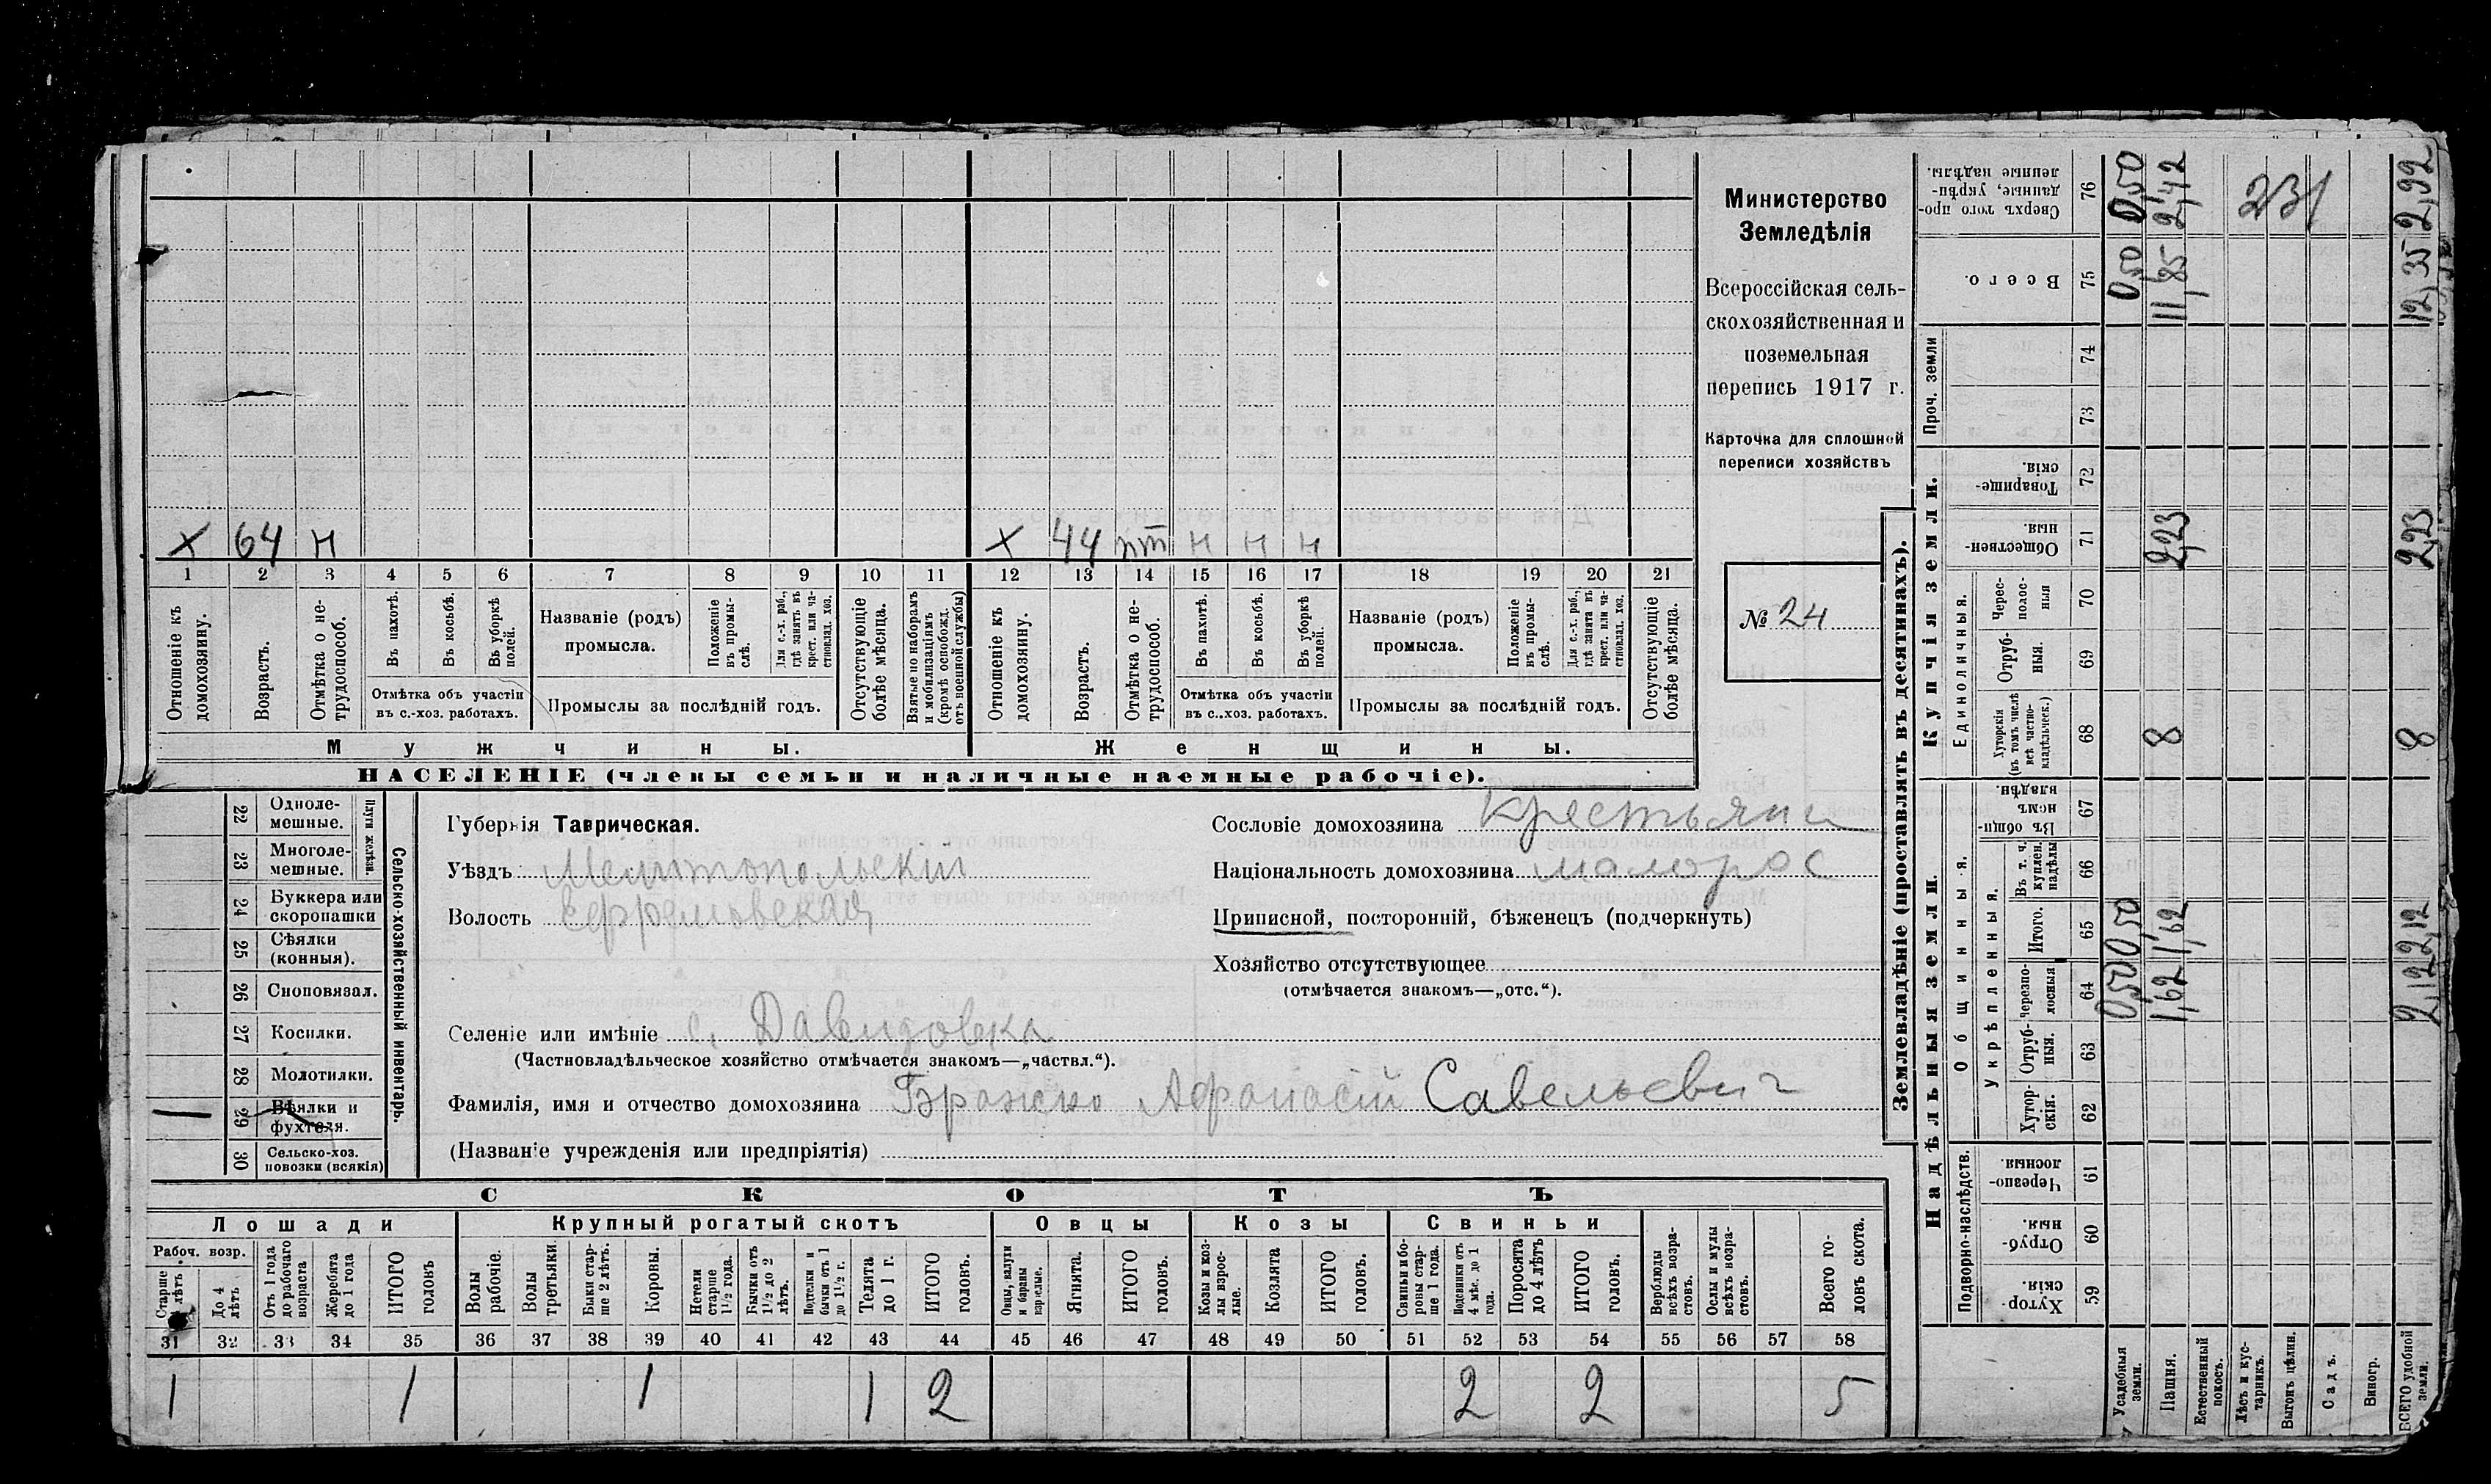 Министерство
Земледѣлія
Всероссійская сель-
скохозяйственная и
поземельная
перепись 1917 г.
Карточка для сплошной
переписи хозяйствъ
№ 24
× 64 н
× 44 н н н
1 2 3 4 5 6 7 8 9 10 11 12 13 14 15 16 17 18 19 20 21
Отношеніе къ домохозяину.
Возрастъ.
Отмѣтка о не-трудоспособ.
Въ пахотѣ.
Въ косьбѣ.
Въ уборкѣ полей.
Отмѣтка объ участіи
въ с.-хоз. работахъ.
Названіе (родъ)
промысла.
Положеніе въ промы-слѣ.
Для с.-х. раб., гдѣ занятъ въ крест. или ча-стновлад. хоз.
Промыслы за послѣдній годъ.
Отсутствующіе болѣе мѣсяца.
Взятые по наборамъ и мобилизаціямъ (кромѣ освобожд. отъ военной службы)
Отношеніе къ домохозяину.
Возрастъ.
Отмѣтка о не-трудоспособ.
Въ пахотѣ.
Въ косьбѣ.
Въ уборкѣ полей.
Отмѣтка объ участіи
въ с.-хоз. работахъ.
Названіе (родъ)
промысла.
Положеніе въ промы-слѣ.
Для с.-х. раб., гдѣ занята въ крест. или ча-стновлад. хоз.
Промыслы за послѣдній годъ.
Отсутствующіе болѣе мѣсяца.
Мужчины.
Женщины.
НАСЕЛЕНІЕ (члены семьи и наличные наемные рабочіе).
Сельско-хозяйственный инвентарь.
Плуги желѣзн.
22 Одноле-мешные.
23 Многоле-мешные.
24 Буккера или скоропашки
25 Сѣялки (конныя).
26 Сноповязал.
27 Косилки.
28 Молотилки.
29 Вѣялки и фухтеля.
30 Сельско-хоз. повозки (всякія)
Губернія Таврическая.
Уѣздъ Мелитопольскій
Волость Ефремовская
Селеніе или имѣніе с. Давидовка
(Частновладѣльческое хозяйство отмѣчается знакомъ—„частвл.“).
Фамилія, имя и отчество домохозяина Бражко Афанасій Савельевич
(Названіе учрежденія или предпріятія)
Сословіе домохозяина крестьянин
Національность домохозяина малорос
Приписной, посторонній, бѣженецъ (подчеркнуть)
Хозяйство отсутствующее
(отмѣчается знакомъ—„отс.“).
СКОТЪ
Лошади
Крупный рогатый скотъ
Овцы
Козы
Свиньи
Рабоч. возр.
Старше 4 лѣтъ
До 4 лѣтъ
Отъ 1 года до рабочаго возраста
Жеребята до 1 года
ИТОГО головъ
Волы рабочіе.
Волы третьяки.
Быки стар-ше 2 лѣтъ.
Коровы.
Нетели старше 1½ года.
Бычки отъ 1½ до 2 лѣтъ.
Подтелки и бычки отъ 1 до 1½ г.
Телята до 1 г.
ИТОГО головъ.
Овцы, валухи и бараны взрослые.
Ягнята.
ИТОГО головъ.
Козы и коз-лы взрос-лые.
Козлята
ИТОГО головъ.
Свиньи и бо-ровы стар-ше 1 года.
Подсвинки отъ 4 мѣс. до 1 года.
Поросята до 4 лѣтъ
ИТОГО головъ.
Верблюды всѣхъ возра-стовъ.
Ослы и мулы всѣхъ возра-стовъ.
Всего го-ловъ скота.
31 32 33 34 35 36 37 38 39 40 41 42 43 44 45 46 47 48 49 50 51 52 53 54 55 56 57 58
1 1 1 1 2 2 2 5
Землевладѣніе (проставлять въ десятинахъ).
Надѣльныя земли.
Купчія земли.
Проч. земли
Подворно-наслѣдств.
Общинныя.
Укрѣпленныя.
Единоличныя.
Сверхъ того про-данные, укрѣп-ленные надѣлы. 76 0,50 2,42 231 2,92
Всего. 75 0,50 11,85 12,35
74
73
Товарище-скія. 72
Обществен-ныя. 71 2,23 2,23
Черес-полос-ныя 70
Отруб-ныя. 69
Хуторскія (въ томъ числѣ всѣ частно-владѣльческ.) 68 8 8
Въ общи-номъ владѣн. 67
Въ т. ч. куплен. надѣлы 66
Итого. 65 0,50 1,62 2,12
Черезпо-лосныя 64 0,50 1,62 2,12
Отруб-ныя. 63
Хутор-скія. 62
Черезпо-лосныя. 61
Отруб-ныя. 60
Хутор-скія. 59
Усадебныя земли.
Пашня.
Естественный покосъ.
Лѣсъ и кус-тарникъ.
Выгонъ цѣлин.
Садъ.
Виногр.
ВСЕГО удобной земли.